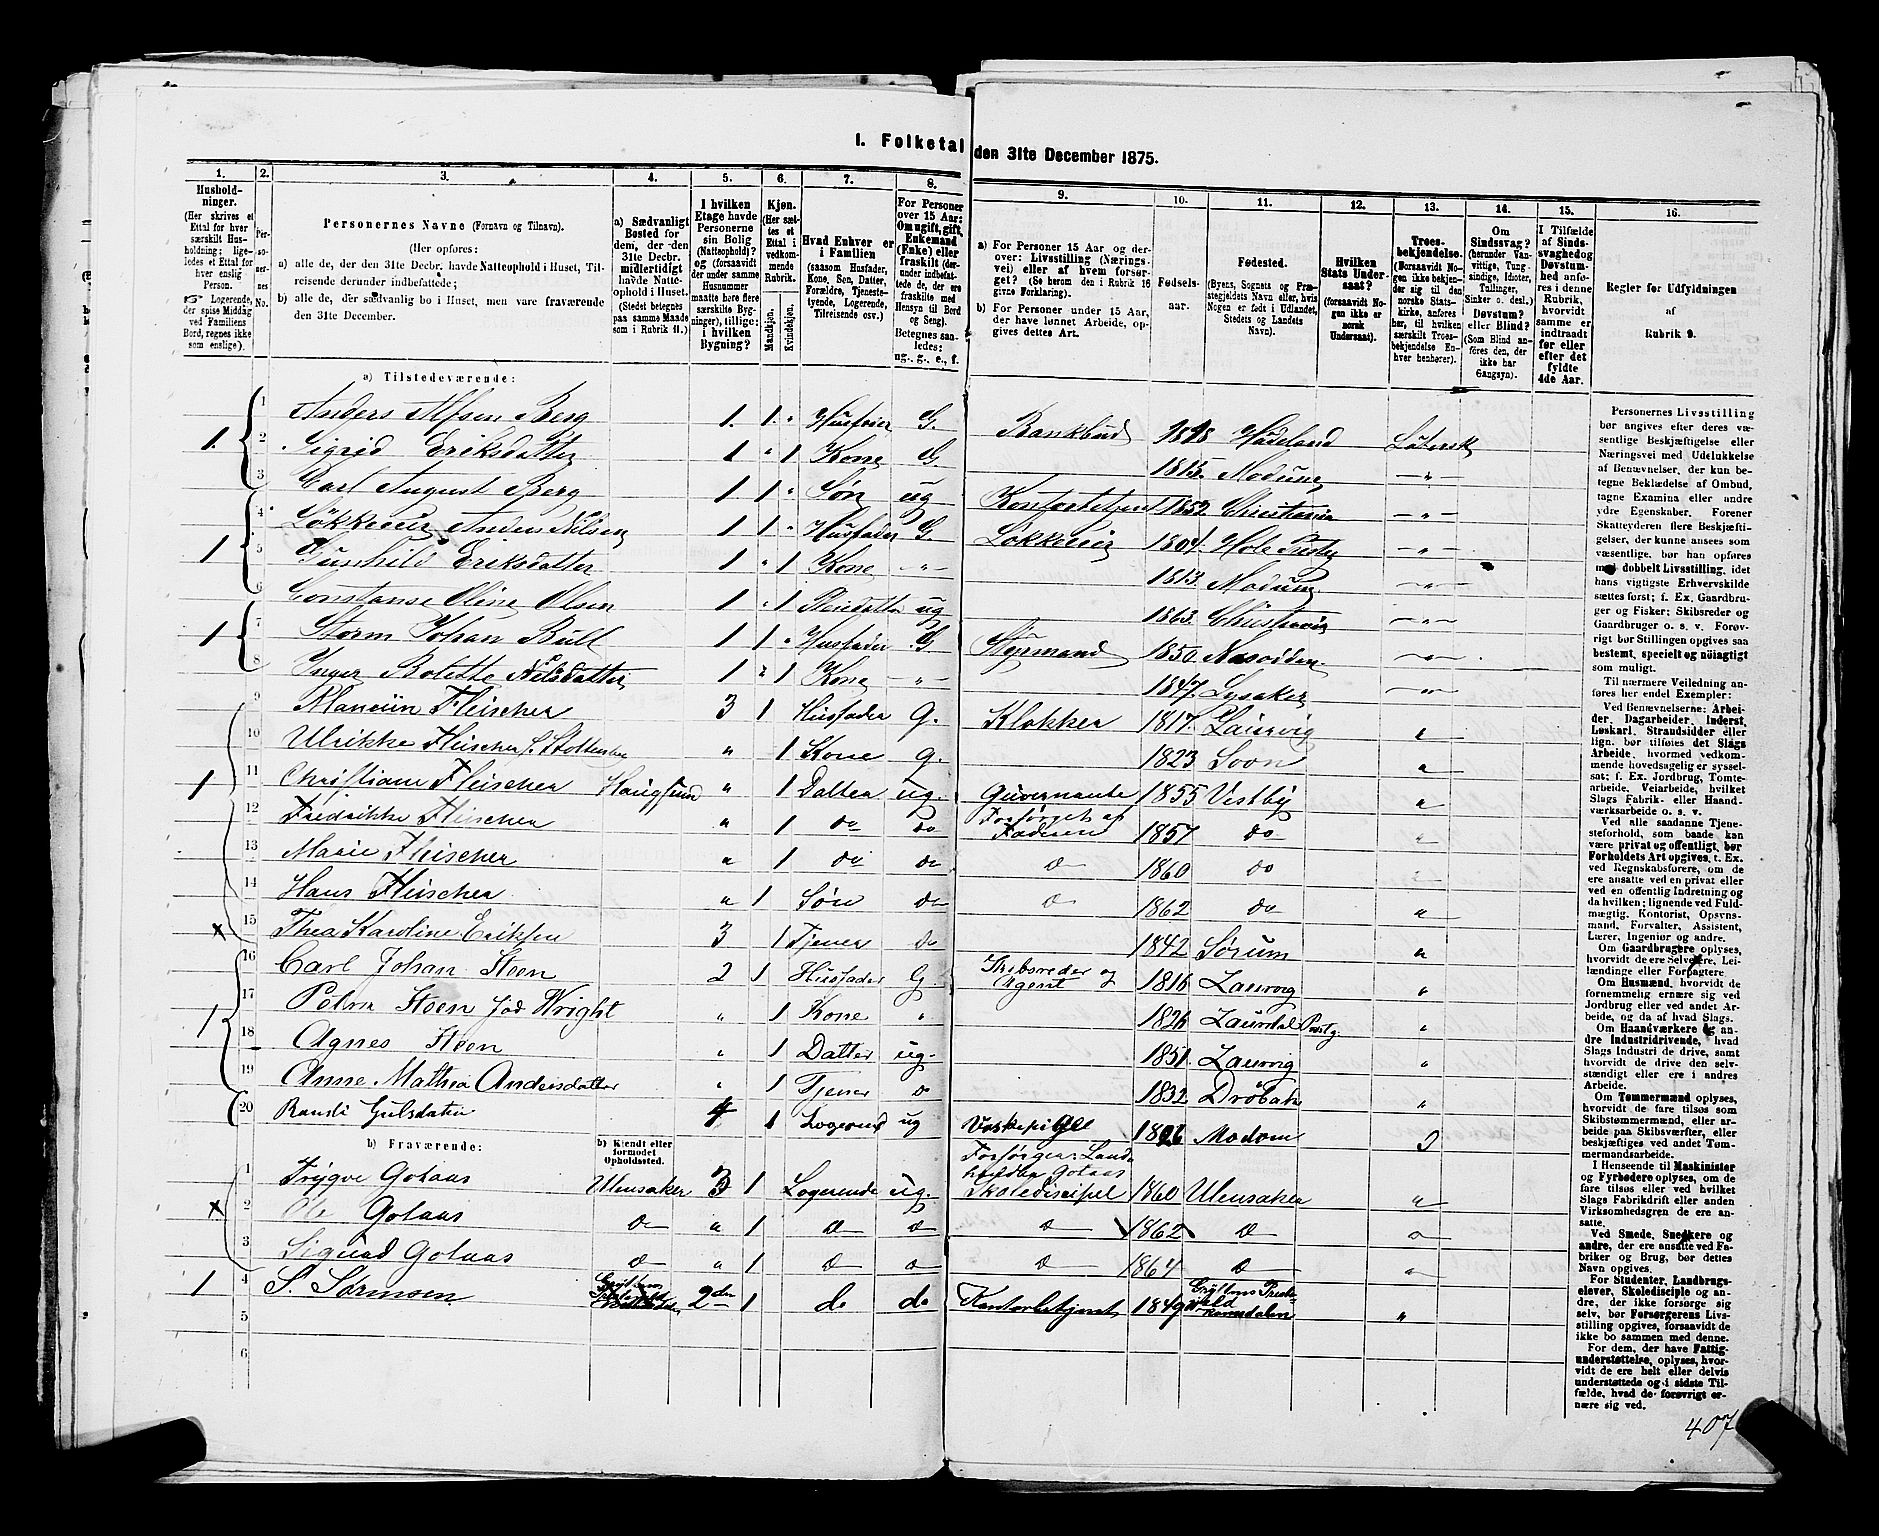 I. Folketal den 31te December 1875.
1. 2. 3. 4. 5. 6. 7. 8. 9. 10. 11. 12. 13. 14. 15. 16.
Hushold-
ninger.
(Her skrives et
Ettal for hver
særskilt Hus-
holdning; lige-
ledes et Ettal for
hver enslig
Person.
☞ Logerende,
der spise Middag
ved Familiens
Bord, regnes ikke
som enslige).
Per-
so-
ner-
nes
No.
Personernes Navne (Fornavn og Tilnavn).
(Her opføres:
a) alle de, der den 31te Decbr. havde Natteophold i Huset, Til-
reisende derunder indbefattede;
b) alle de, der sædvanlig bo i Huset, men vare fraværende
den 31te December.
a) Sædvanligt
Bosted for
dem, der den
31te Decbr.
midlertidigt
havde Natte-
ophold i Huset.
(Stedet betegnes
paa samme Maade
som i Rubrik 11.)
I hvilken
Etage havde
Personerne
sin Bolig
(Natteophold)?
og (forsaavidt
der under samme
Husnummer
maatte høre flere
særskilte Byg-
ninger), tillige:
i hvilken
Bygning?
Kjøn.
(Her sæt-
tes et
Ettal i
vedkom-
mende
Rubrik.
Mandkjøn.
Kvindekjøn.
Hvad Enhver er
i Familien
(saasom Husfader,
Kone, Søn, Datter,
Forældre, Tjeneste-
tyende, Logerende,
Tilreisende osv.)
For Personer
over 15 Aar:
Om ugift, gift,
Enkemand
(Enke) eller
fraskilt (der-
under indbefat-
tede de, der ere
fraskilte med
Hensyn til Bord
og Seng).
Betegnes saa-
ledes:
ug., g., e., f.
a) For Personer 15 Aar og der-
over: Livsstilling (Nærings-
vei) eller af hvem forsør-
get? (Se herom den i Rubrik 16
givne Forklaring).
b) For Personer under 15 Aar,
der have lønnet Arbeide, op-
gives dettes Art.
Fødsels-
aar.
Fødested.
(Byens, Sognets og Præ-
stegjeldets Navn eller, hvis
Nogen er født i Udlandet,
Stedets og Landets
Navn).
Hvilken
Stats Under-
saat?
(forsaavidt No-
gen ikke er
norsk
Undersaat).
Troes-
bekjendelse.
(Forsaavidt No-
gen ikke bekjen-
der sig til den
norske Stats-
kirke, anføres
her, til hvilken
særskilt Troes-
bekjendelse En-
hver henhører).
Om
Sindssvag?
(herunder Van-
vittige, Tung-
sindige, Idioter,
Tullinger,
Sinker o. desl.)
Døvstum?
eller Blind?
(Som Blind an-
føres den, der
ikke har
Gangsyn).
I Tilfælde
af Sinds-
svaghed og
Døvstum-
hed anfø-
res i denne
Rubrik,
hvorvidt
samme er
indtraadt
før eller
efter det
fyldte
4de Aar.
Regler for Udfyldningen
af
Rubrik 9.
a) Tilstedeværende:
1. 1 Anders Alfsen Berg 1. 1. Husfader G. Bankbud 1818 Hadeland Lutersk
2 Sigrid Eriksdatter 1 " 1 Kone G 1815. Modum - " -
3 Carl August Berg 1 1 " Søn ug Kontorbetjent 1852 Christiania - " -
1 4 Løkkeeier Anders Nilsen 1 1 " Husfader G Løkkeeier 1804. Hole - " -
5 Gunhild Eriksdatter 1 " 1 Kone - " - 1813. Modum - " -
6 Constanse Oline Olsen 1 " 1 Pleiedatter ug 1863. Christiania - " -
1 7 Storm Johan Bull 1 1 " Husfader G Styrmand 1850. - " -
8 Inger Bolette Nilsdatter 1 " 1 Kone - " - 1847. Lysaker - " -
1 9 Fleischer 3 1 Husfader g. Klokker 1817. Laurvig "
10 Ulrikke Fleischer f. Stoltenberg " 1 Kone g. 1823 Soon "
11 Christiane Fleischer Haugsund " 1 Datter ug. Guvernante 1855 Vestby "
12 Fredrikke Fleischer " 1 do do Forsørget af Faderen 1857 do "
13 Marie Fleischer " 1 do do do 1860 do "
14 Hans Fleischer " 1 Søn do do 1862 do "
15 Thea Karoline Eriksen 3 1 Tjener do 1842 Sørum "
1 16 Carl Johan Steen 2 1 Husfader G. Skibsreder og Agent 1816 Laurvig "
17 Petra Steen fød Wright " 1 Kone " 1826 Laurdal Prestg "
18 Agnes Steen " 1 Datter ug. 1851. Laurvig "
19 Anne Mathia Andersdatter " 1 Tjener do 1832 Drøbak "
20 Randi Gulsdatter 4 1 Logerend ug Vaskepige 1826 Modum
b) Fraværende:
b) Kjendt eller
formodet
Opholdssted.
1 Trygve Gotaas Ulensaker 3 1 Logerende ug. Forsørger: Landhandler Gotaas Skolediscipel 1860 Ulensaker "
2 Ole Gotaas do " 1 do do do 1862 do "
3 Sigurd Gotaas do " 1 do do do 1864 do "
1 4 S. Sørensen 2den 1 do do Kontorbetjent 1849 Gryttens Præstegjeld Romsdalen "
5
6
Personernes Livsstilling
bør angives efter deres væ-
sentlige Beskjæftigelse eller
Næringsvei med Udelukkelse
af Benævnelser, der kun be-
tegne Beklædelse af Ombud,
tagne Examina eller andre
ydre Egenskaber. Forener
Skatteyderen flere Beskjæfti-
gelser, der kunne ansees som
væsentlige, bør han opføres
med dobbelt Livsstilling, idet
hans vigtigste Erhvervskilde
sættes først; f. Ex. Gaardbru-
ger og Fisker; Skibsreder og
Gaardbruger o. s. v. Forøv-
rigt bør Stillingen opgives saa
bestemt, specielt og nøiagtigt
som muligt.
Til nærmere Veiledning an-
føres her endel Exempler:
Ved Benævnelserne: Arbei-
der, Dagarbeider, Inderst,
Løskarl, Strandsidder eller
lign. bør tilføies det Slags
Arbeide, hvormed vedkom-
mende hovedsagelig er syssel-
sat; f. Ex. Jordbrug, Tomte-
arbeide, Veiarbeide, hvilket
Slags Fabrik- eller Haand-
værksarbeide o. s. v.
Ved alle saadanne Tjene-
steforhold, som baade kan
være privat og offentligt, bør
Forholdets Art opgives, t. Ex.
ved Regnskabsførere, om de
ere ansatte ved en privat eller
ved en offentlig Indretning og
da hvilken; lignende ved Fuld-
mægtig, Kontorist, Opsyns-
mand, Forvalter, Assistent,
Lærer, Ingeniør og andre.
Om Gaardbrugere oplyses,
hvorvidt de ere Selveiere, Lei-
lændinge eller Forpagtere
Om Husmænd, hvorvidt de
fornemmelig ernære sig ved
Jordbrug eller ved andet Ar-
beide, og da af hvad Slags.
Om Haandværkere og an-
dre Industridrivende, hvad
Slags Industri de drive, samt
hvorvidt de drive den selv-
stændigt eller ere i andres
Arbeide.
Om Tømmermænd oplyses,
hvorvidt de fare tilsøs som
Skibstømmermænd, eller ar-
beide paa Skibsværfter, eller
beskjæftiges ved andet Tøm-
mermandsarbeide.
I Henseende til Maskinister
og Fyrbødere oplyses, om de
fare tilsøs eller ved hvilket
Slags Fabrikdrift eller anden
Virksomhedsgren de ere an-
satte.
Ved Smede, Snedkere og
andre, der ere ansatte ved Fa-
briker og Brug, bør dettes
Navn opgives.
For Studenter, Landbrugs-
elever, Skoledisciple og an-
dre, der ikke forsørge sig
selv, bør Forsørgerens Livs-
stilling opgives, forsaavidt de
ikke bo sammen med denne.
For dem, der have Fattig-
understøttelse, oplyses, hvor-
vidt de ere helt eller delvis
understøttede og i sidste Til-
fælde, hvad de forøvrigt er-
nære sig ved.
407